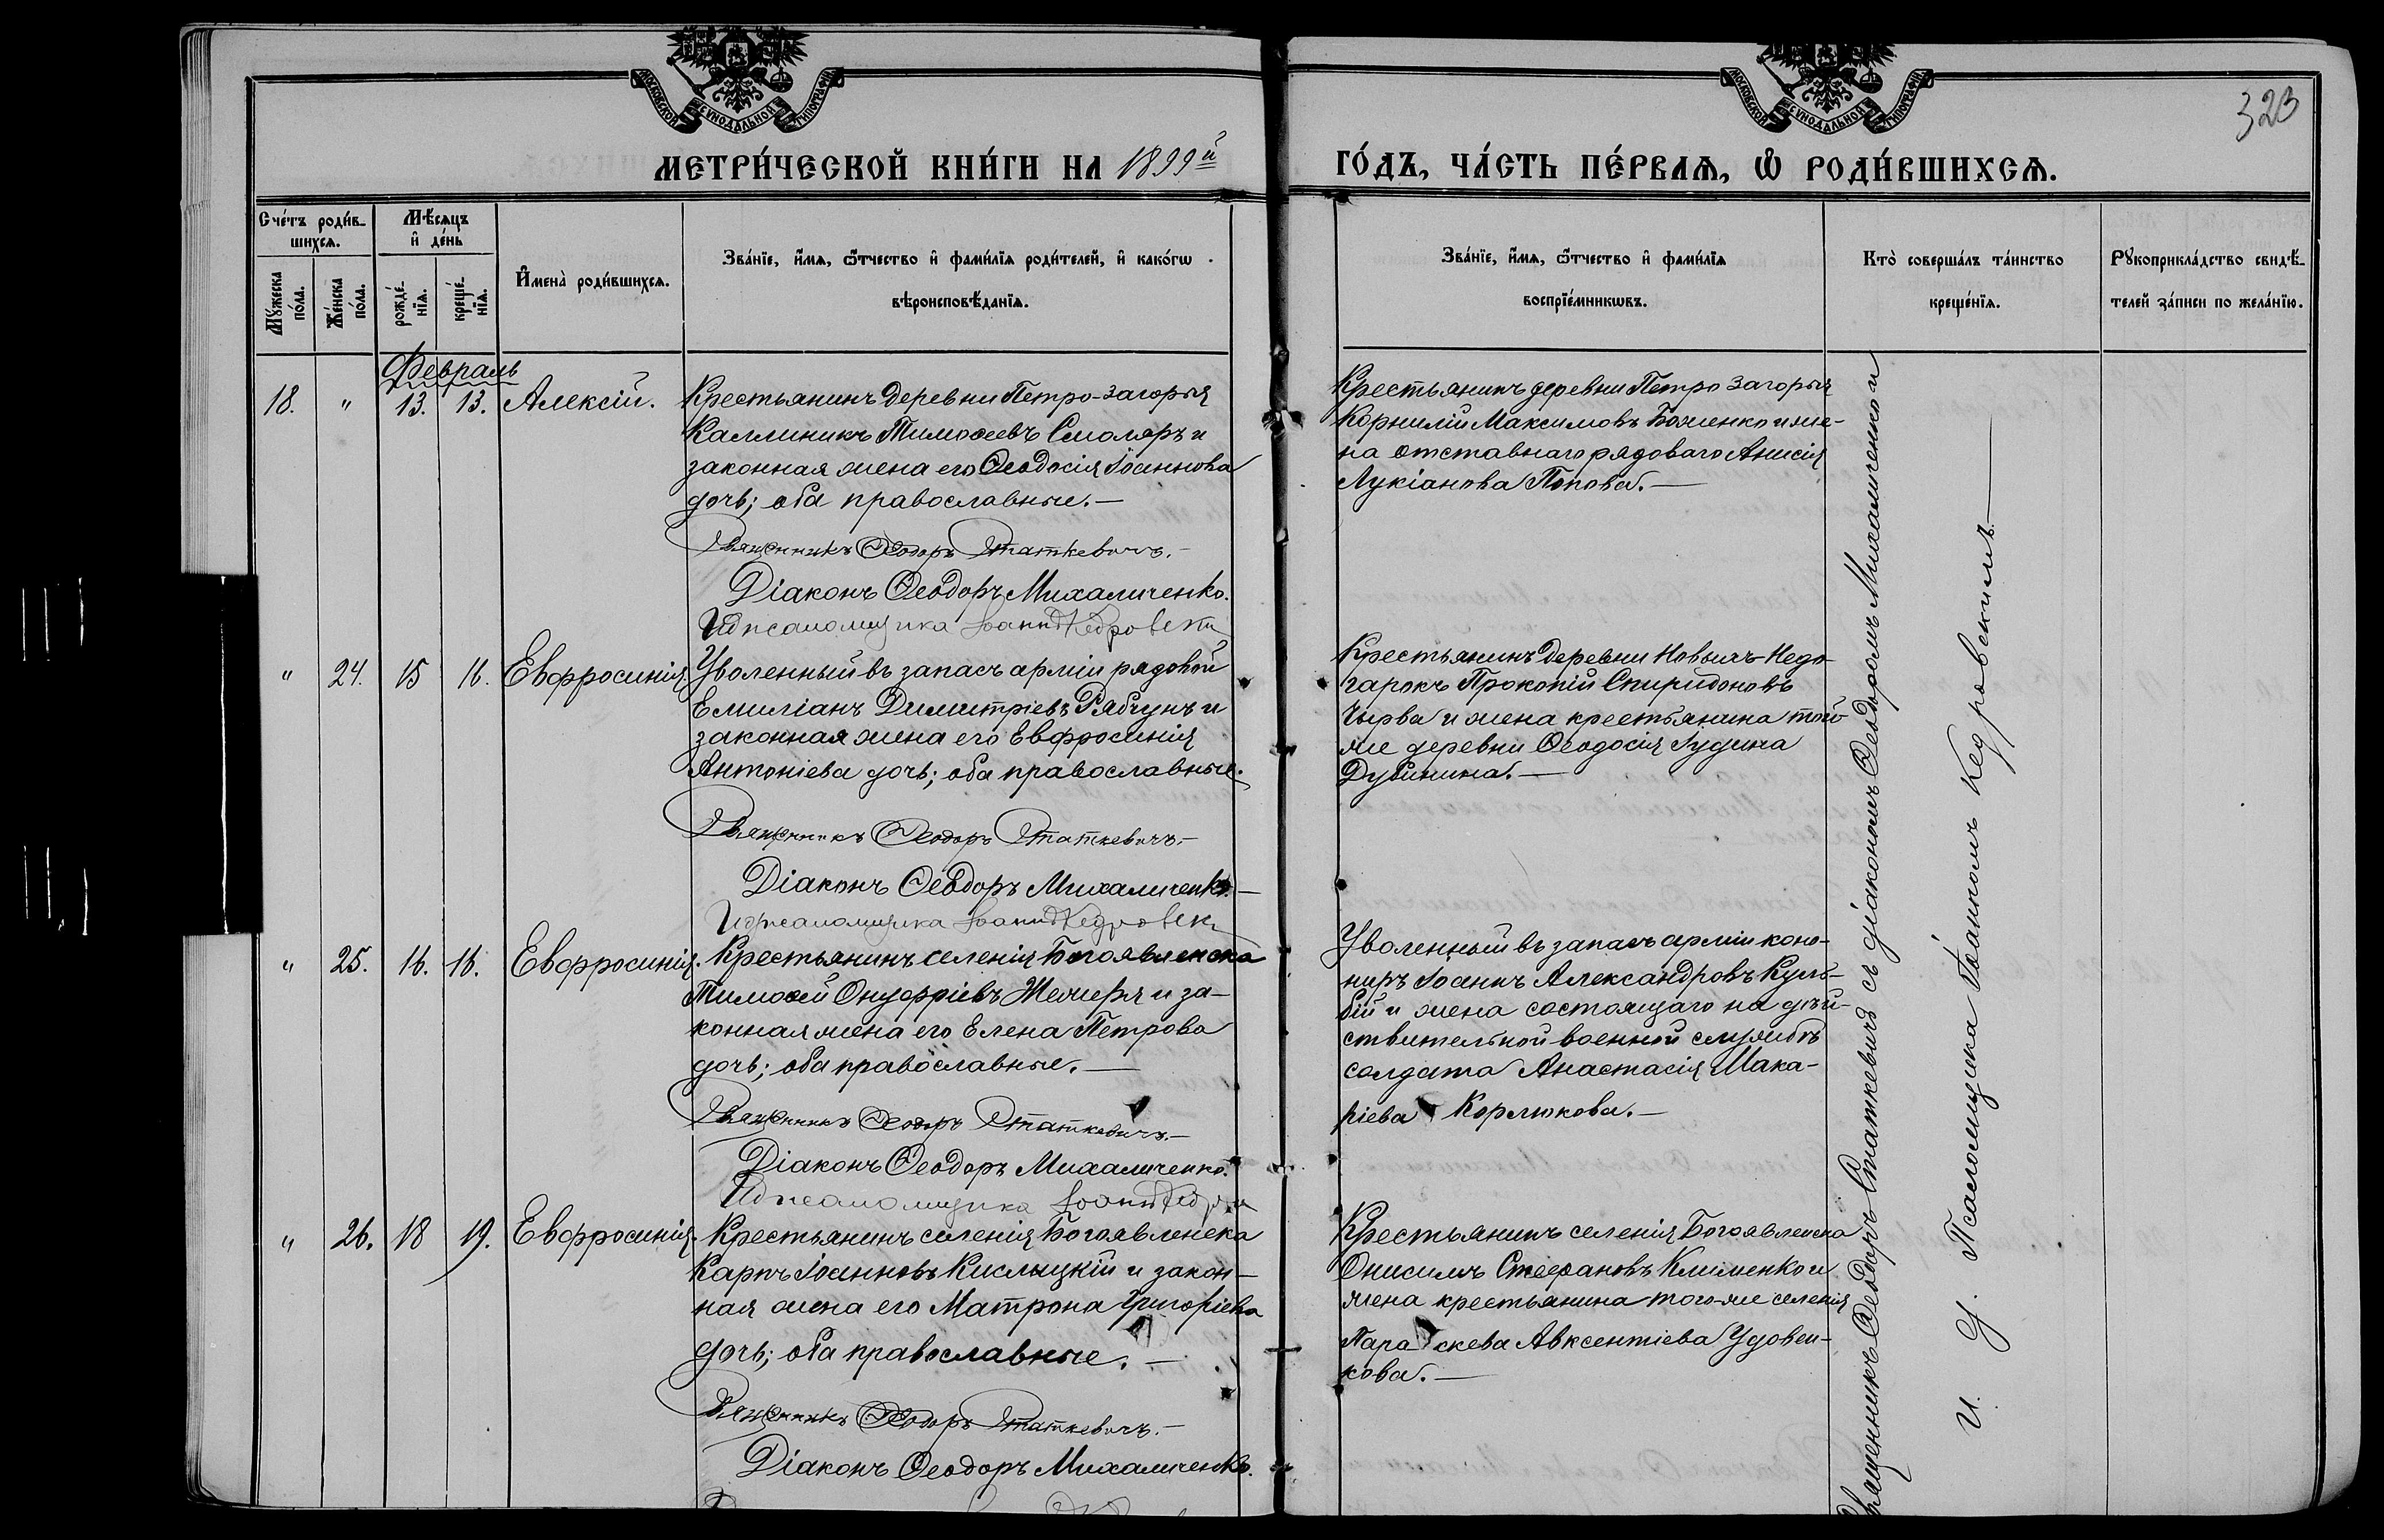 МОСКОВСКОЙ СѴНОДАЛЬНОЙ ТИПОГРАФІИ
МОСКОВСКОЙ СѴНОДАЛЬНОЙ ТИПОГРАФІИ
323
МЕТРИ́ЧЕСКОЙ КНИ́ГИ НА 1899й
ГО́ДЪ, ЧА́СТЬ ПЕ́РВАѦ, Ѡ҆ РОДИ́ВШИХСѦ.
Сче́тъ роди́в-
шихсѧ.
Мꙋ́жеска
по́ла.
Же́нска
по́ла.
Мѣ́сѧцъ
и҆ де́нь
рожде́-
нїѧ.
креще́-
нїѧ.
И҆мена̀ роди́вшихсѧ.
Зва́нїе, и҆́мѧ, ѻ҆́тчество и҆ фами́лїѧ роди́телей, и҆ како́гѡ
вѣроисповѣ́данїѧ.
Зва́нїе, и҆́мѧ, ѻ҆́тчество и҆ фами́лїѧ
воспрїе́мникѡвъ.
Кто̀ соверша́лъ та́инство
креще́нїѧ.
Рꙋкоприкла́дство свидѣ́-
телей за́писи по жела́нїю.
Февраль
18. " 13. 13. Алексій.
Крестьянинъ деревни Петро-Загорья
Каллиникъ Тимоѳеевъ Смоляръ и
законная жена его Ѳеодосія Іоаннова
дочь; оба православные.—
Священникъ Ѳеодоръ Статкевичъ.—
Діаконъ Ѳеодоръ Михаличенко.
И д псаломщика Іоаннъ Кедровскій
Крестьянинъ деревни Петро Загорья
Корнилій Максимовъ Боженко и же-
на отставнаго рядоваго Анисія
Лукіанова Попова.—
" 24. 15 16. Евфросинія.
Уволенный въ запасъ арміи рядовой
Емиліанъ Димитріевъ Рябчунъ и
законная жена его Евфросинія
Антоніева дочь; оба православные.
Священникъ Ѳеодоръ Статкевичъ.—
Діаконъ Ѳеодоръ Михаличенко.—
И д псаломщика Іоаннъ Кедровскі
Крестьянинъ деревни Новыхъ-Недо-
гарокъ Прокопій Спиридоновъ
Чырва и жена крестьянина той-
же деревни Ѳеодосія Іудина
Дубинина.—
" 25. 16. 16. Евфросинія.
Крестьянинъ селенія Богоявленска
Тимоѳей Онуфріевъ Жемеря и за-
конная жена его Елена Петрова
дочь; оба православные.—
Священникъ Ѳеодоръ Статкевичъ.—
Діаконъ Ѳеодоръ Михаличенко.
И д псаломщика Іоаннъ Кедро
Уволенный въ запасъ арміи коно-
ниръ Іоаннъ Александровъ Куль-
бій и жена состоящаго на дѣй-
ствительной военной службѣ
солдата Анастасія Мака-
ріева Корлюкова.—
" 26. 18 19. Евфросинія.
Крестьянинъ селенія Богоявленска
Карпъ Іоанновъ Кислыцкій и закон-
ная жена его Матрона Григоріева
дочь; оба православные.—
Священникъ Ѳеодоръ Статкевичъ.—
Діаконъ Ѳеодоръ Михаличенко.
Крестьянинъ селенія Богоявленска
Онисимъ Стефановъ Клименко и
жена крестьянина того-же селенія
Параскева Авксентіева Удовен-
кова.—
Священникъ Ѳеодоръ Статкевичъ съ діакономъ Ѳеодоромъ Михаличенко и
И. д. Псаломщика Іоанномъ Кедровскимъ.—